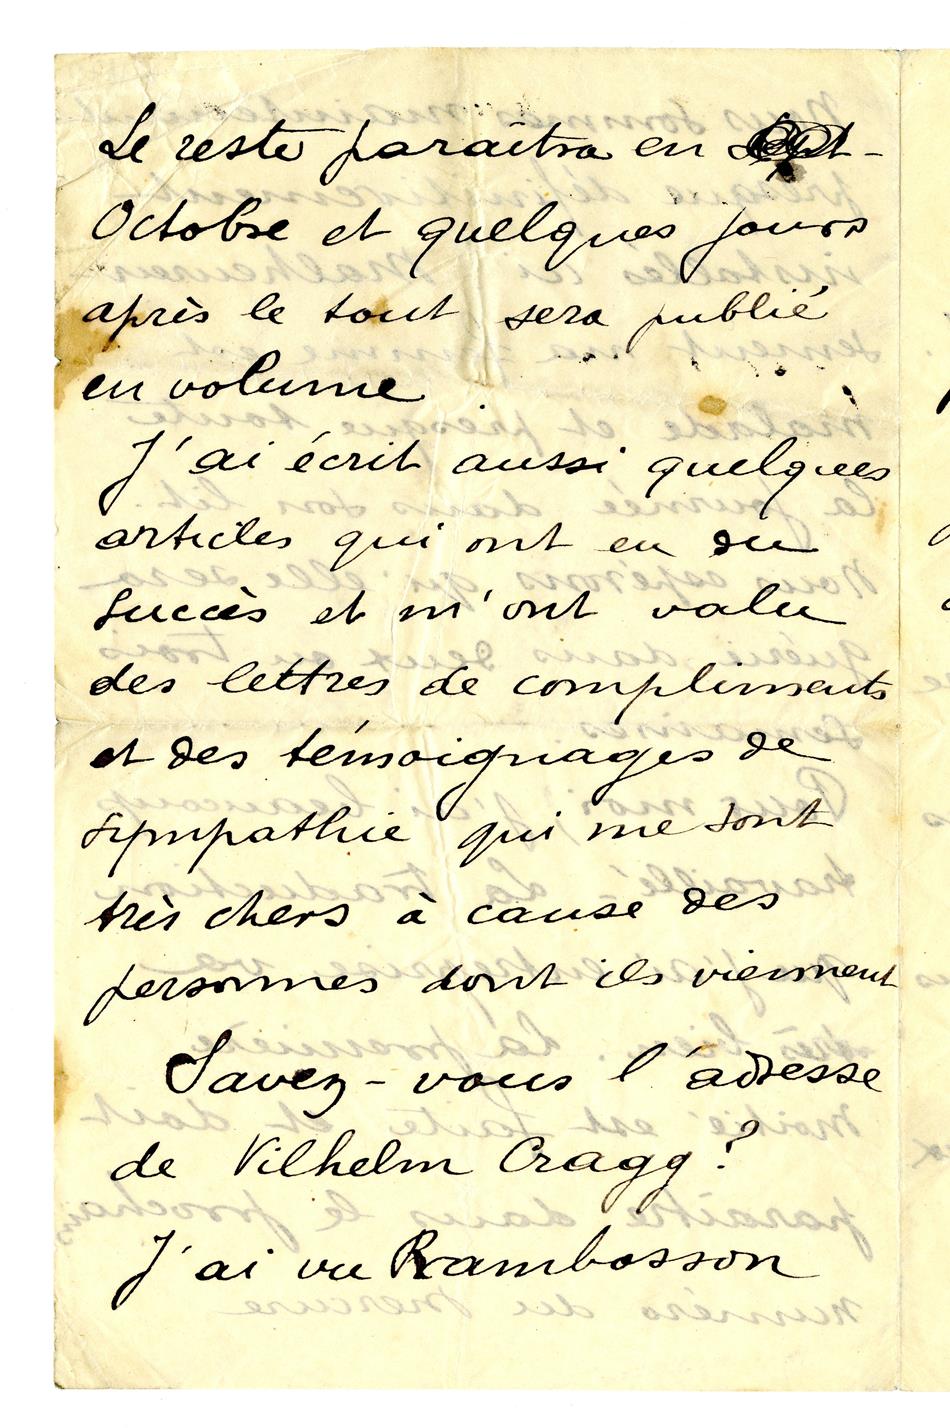 Le reste paraîtra en
Octobre et quelques jours
après le tout sera publié
en volume
J'ai écrit aussi quelques
articles qui ont eu du
succès et m'ont valu
des lettres de compliments
et des témoignages de
sympathie qui me sont
très chers à cause des
personnes dont ils viennent
Savez-vous l'adresse
de Vilhelm Cragg?
J'ai vu Rambosson